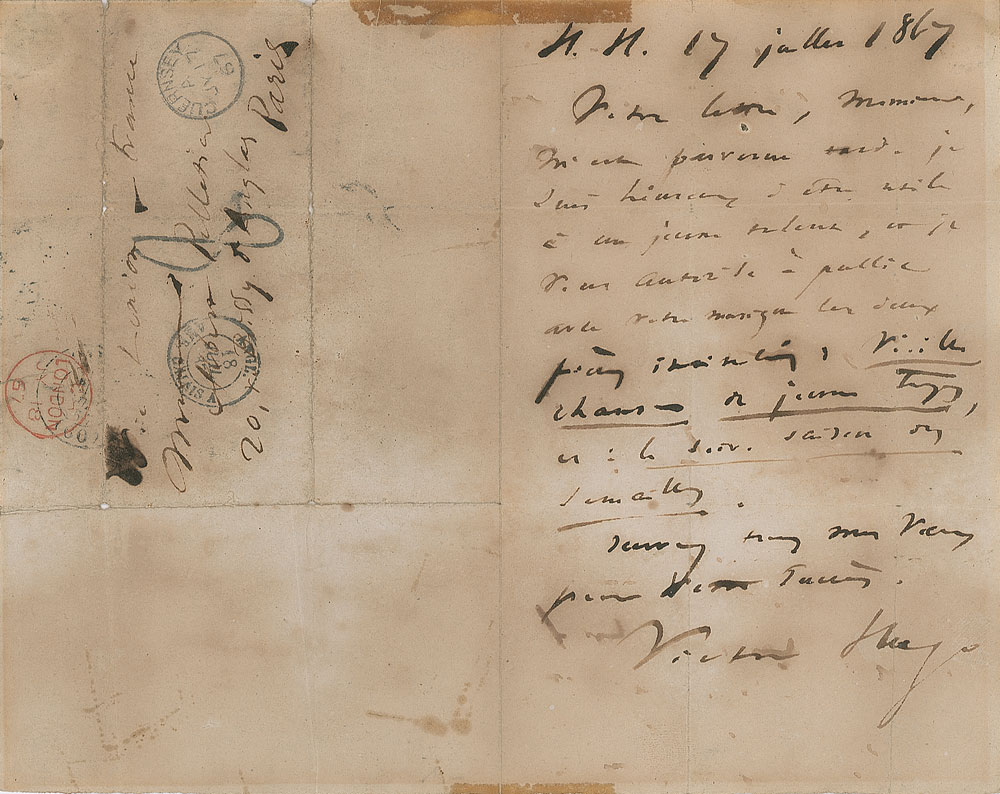 H. H. 17 juillet 1867
Votre lettre, Monsieur,
m'est parvenue tard. je
suis heureux d'être utile
à un jeune talent, et je
vous autorise à publier
avec votre musique les deux
pièces intitulées, Vieille
chanson du jeune temps,
et : le soir. saison des
semailles.
recevez tous mes vœux
pour votre succès.
Victor Hugo
via London — France
Monsieur
Pellissier
20, r Boissy d'Anglas Paris
GUERNSEY
67
LONDON
67
18